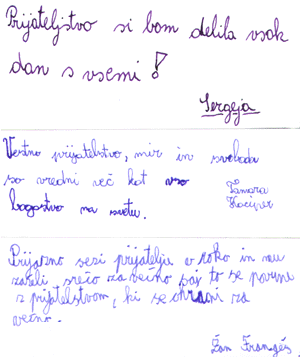 Prijateljstvo si bom delila vsak
dan s vsemi!
Sergeja
Vestno prijatelstvo, mir in svoboda
so vredni več kot vso
bogastvo na svetu.
Tamara
Kociper
Prijazno sezi prijatelju v roko in mu
zaželi srečo za večno saj to se povrne
s prijatelstvom, ki se ohrani za
večno.
Žan Frangéš